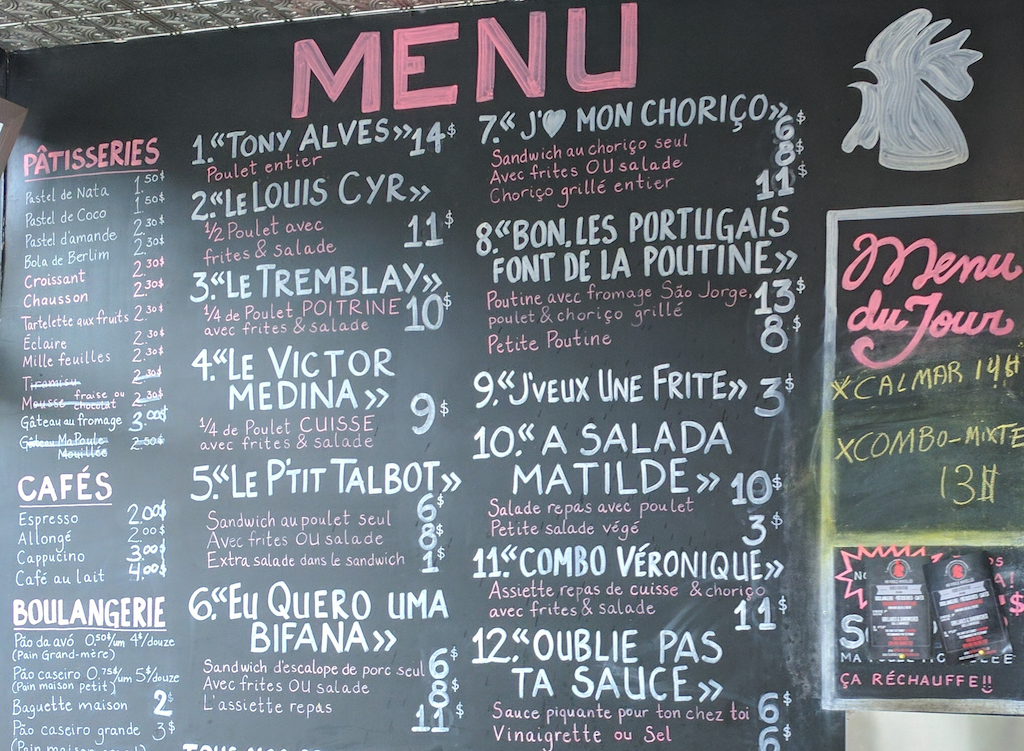 MENU
PÂTISSERIES
Pastel de Nata 1.50$
Pastel de Coco 1.50$
Pastel d'amande 2.30$
Bola de Berlim 2.30$
Croissant 2.30$
Chausson 2.30$
Tartelette aux fruits 2.30$
Éclaire 2.30$
Mille feuilles 2.30$
Tiramisu 2.30$
Mousse fraise ou chocolat 2.30$
Gâteau au fromage 3.00$
Gâteau Ma Poule Mouillée 2.50$
CAFÉS
Espresso 2.00$
Allongé 2.00$
Cappucino 3.00$
Café au lait 4.00$
BOULANGERIE
Pão da avó 0.50$/um 4$/douze
(Pain Grand-mère)
Pão caseiro 0.75$/um 5$/douze
(Pain maison petit)
Baguette maison 2$
Pão caseiro grande 3$
1. «TONY ALVES» 14$
Poulet entier
2. «LE LOUIS CYR»
1/2 Poulet avec
frites & salade 11$
3. «LE TREMBLAY»
1/4 de Poulet POITRINE
avec frites & salade 10$
4. «LE VICTOR
MEDINA»
1/4 de Poulet CUISSE
avec frites & salade 9$
5. «LE P'TIT TALBOT»
Sandwich au poulet seul 6$
Avec frites OU salade 8$
Extra salade dans le sandwich 1$
6. «EU QUERO UMA
BIFANA»
Sandwich d'escalope de porc seul 6$
Avec frites OU salade 8$
L'assiette repas 11$
7. «J'♡ MON CHORIÇO»
Sandwich au choriço seul 6$
Avec frites OU salade 8$
Choriço grillé entier 11$
8. «BON, LES PORTUGAIS
FONT DE LA POUTINE»
Poutine avec fromage São Jorge,
poulet & choriço grillé 13$
Petite Poutine 8$
9. «J'VEUX UNE FRITE» 3$
10. «A SALADA
MATILDE»
Salade repas avec poulet 10$
Petite salade végé 3$
11. «COMBO VÉRONIQUE»
Assiette repas de cuisse & choriço
avec frites & salade 11$
12. «OUBLIE PAS
TA SAUCE»
Sauce piquante pour ton chez toi 6$
Vinaigrette ou Sel 6
Menu
du Jour
XCALMAR 14$
XCOMBO-MIXTE
13$
ÇA RÉCHAUFFE!!